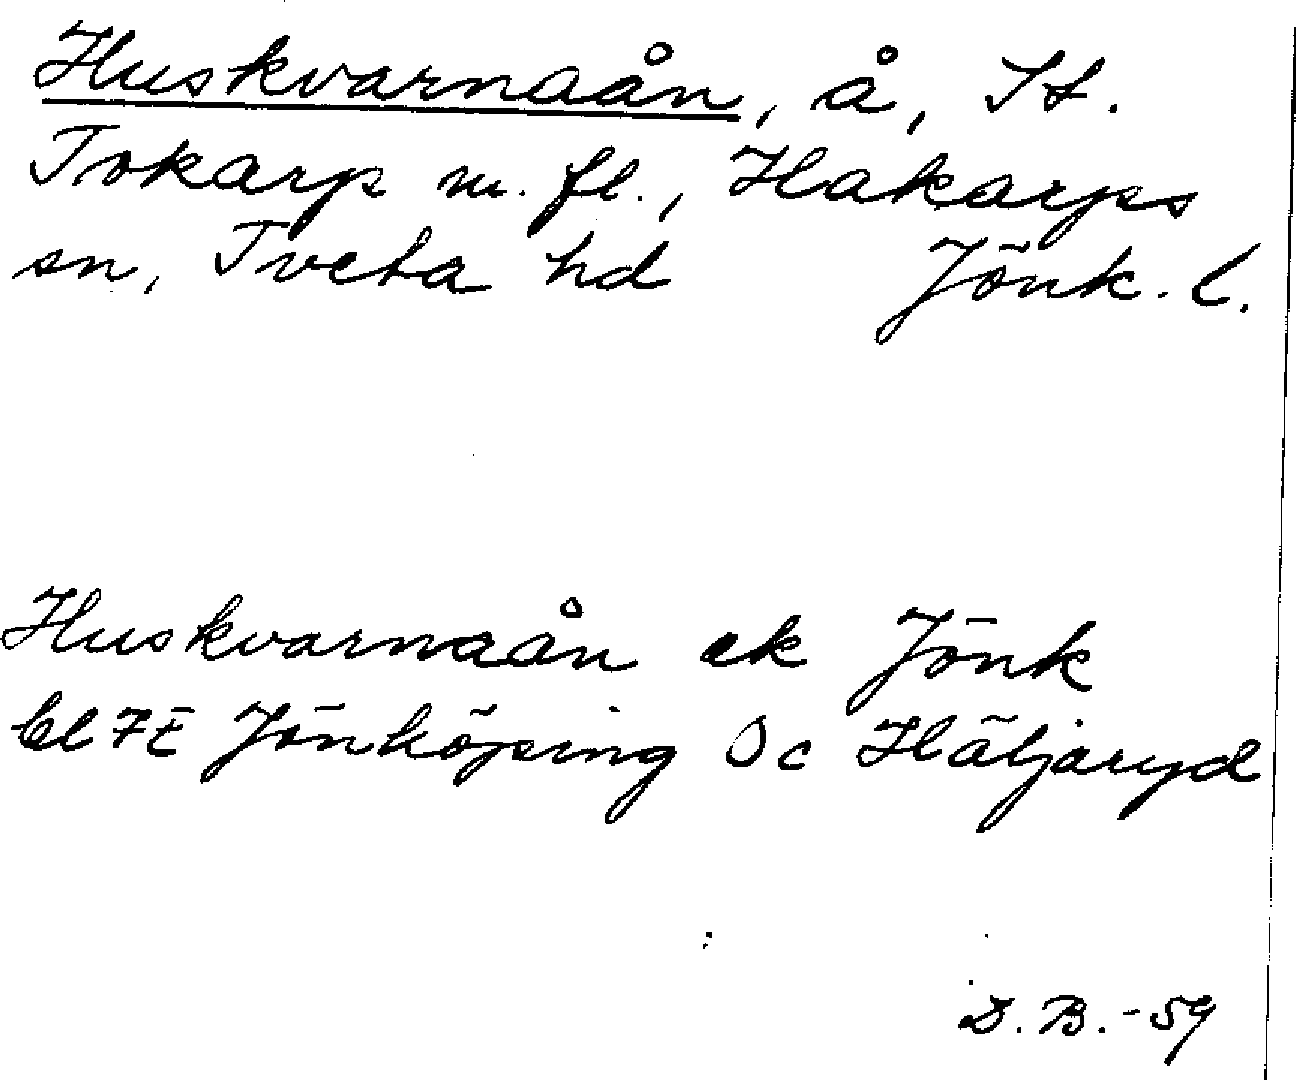 Huskvarnaån, å, St.
Tokarp m. fl., Hakarps
sn, Tveta hd Jönk. l.
Huskvarnaån ek Jönk
bl 7E Jönköping Oc Häljaryd
D. B. -59